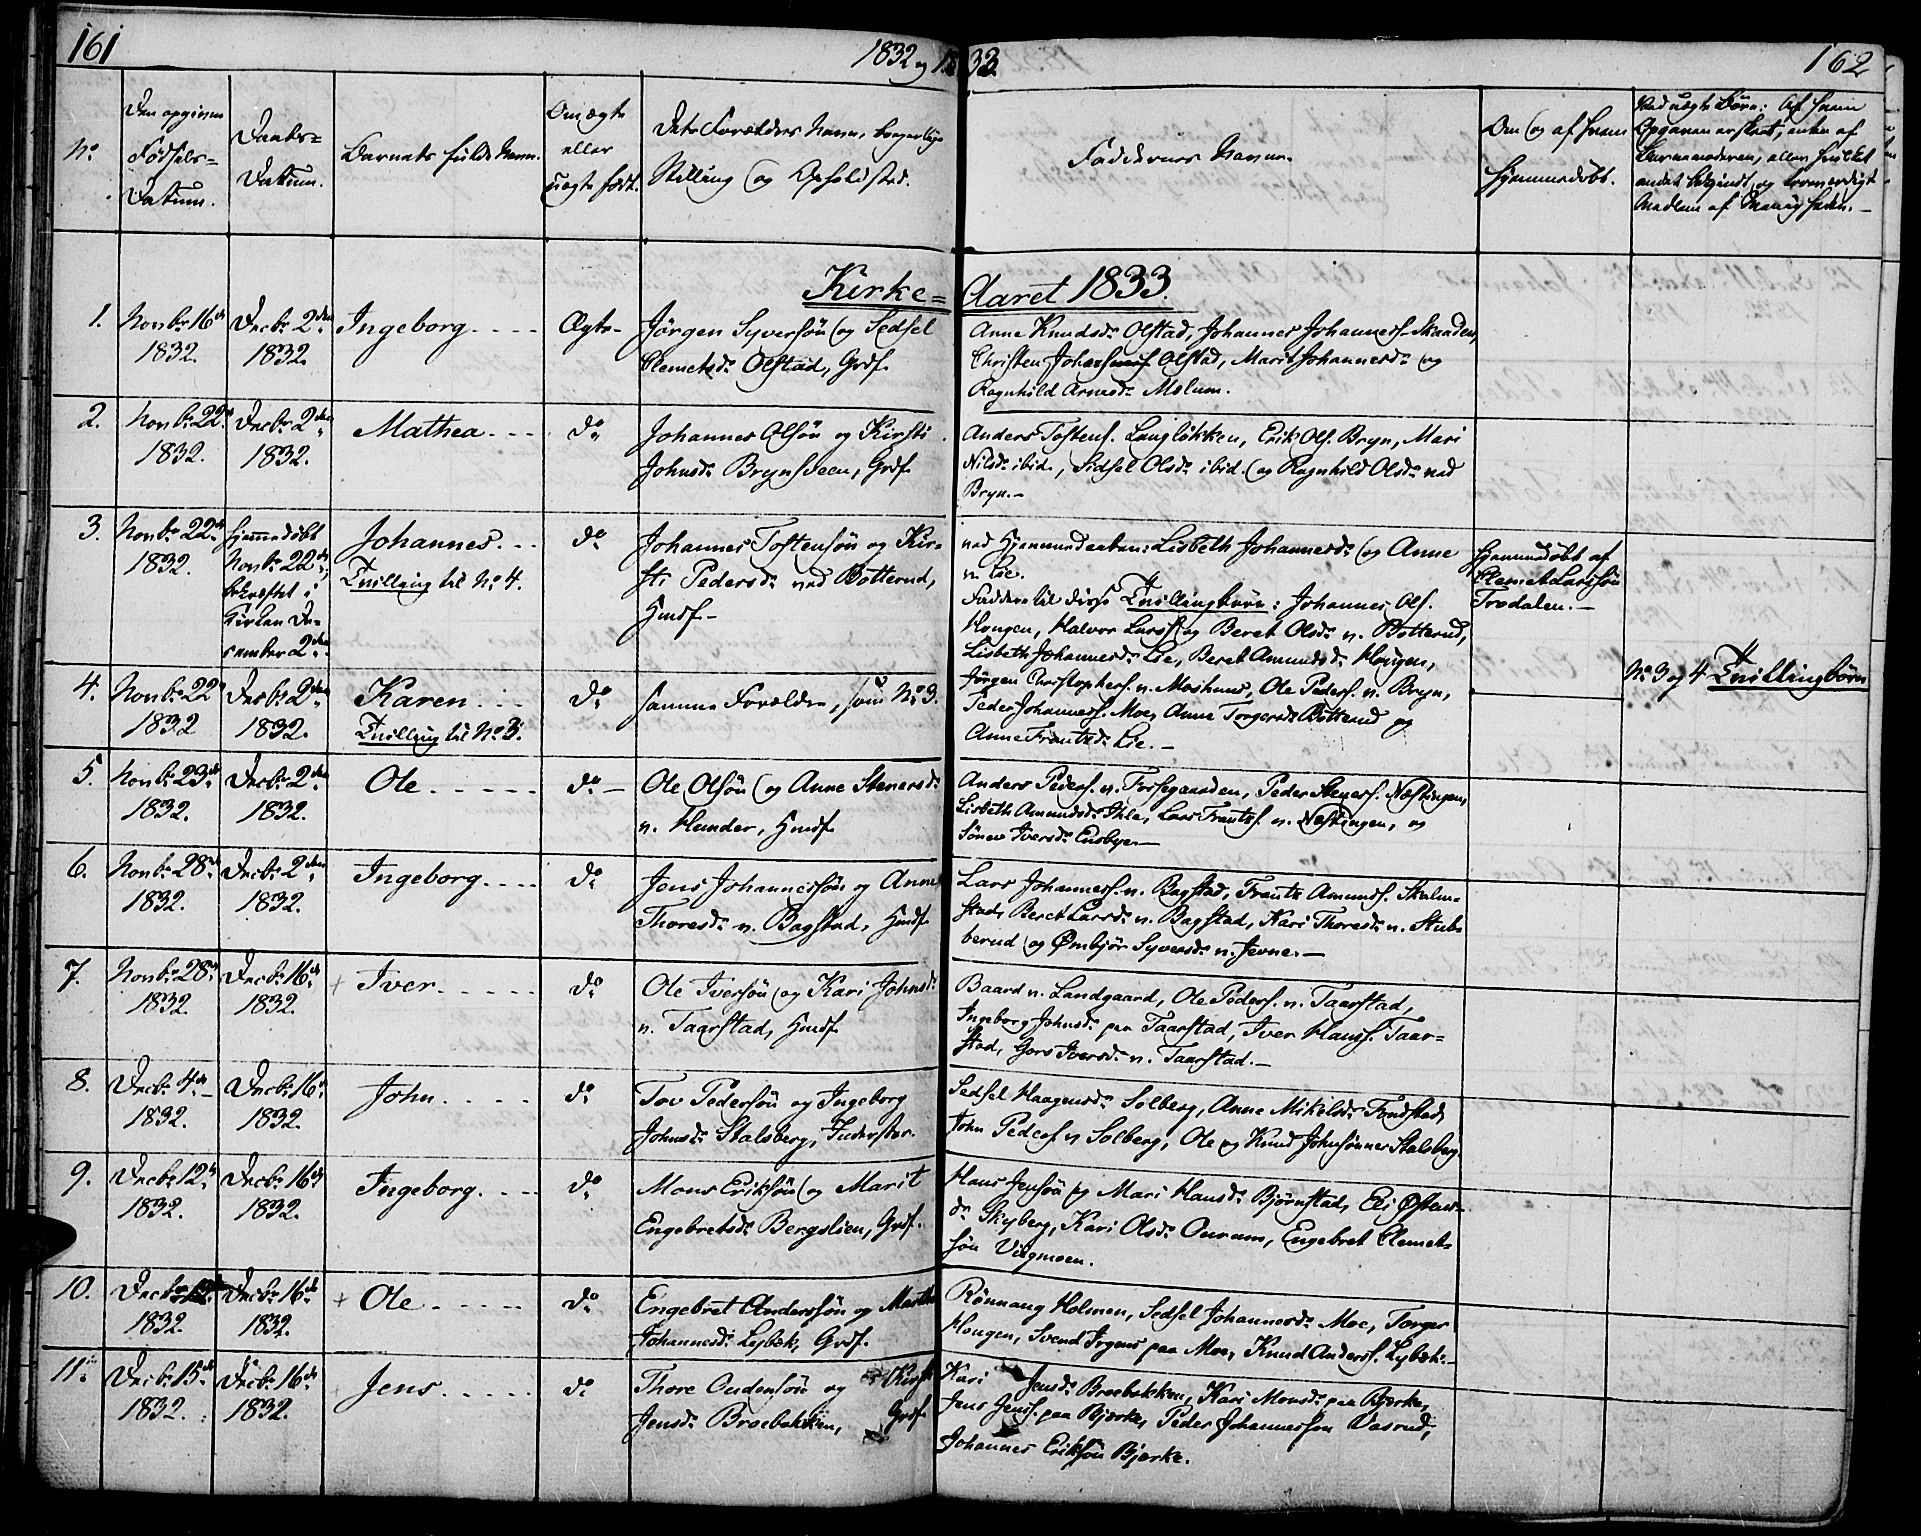 161
1832 og 1833.
162
No.
Den opgivne
Fødsels=
Datum.
Daabs=
Datum.
Barnets fulde Navn.
Om ægte
eller
uægte født.
Dets Forældres Navne, borgerlige
Stilling og Opholdsted.
Faddernes Navne.
Om og af hvem
hjemmedøbt.
Ved uægte Børn: Af hvem
Opgaven er skeet, enten af
Barnemoderen, eller hvilket
andet bekjendt og troeværdigt
Medlem af Menigheden.
Kirke= Aaret 1833.
1.
Novbr 16de
1832.
Decbr 2den
1832.
Ingeborg
Ægte
Jørgen Syversøn og Sedsel
Clemetsdr. Olstad, Grdf.
Anne Knudsdr. Olstad, Johannes Johanness. Skaaden,
Christen Johanness. Olstad, Marit Johannesdr. og
Ragnhild Arnesdr. Melum.
2.
Novbr 22de
1832.
Decbr 2den
1832.
Mathea
do
Johannes Olsøn og Kirsti
Johnsdr. Brynsveen, Grdf.
Anders Tostens. Langløkken, Erik Ols. Bryn, Mari
Nilsdr. ibid., Sidsel Olsdr. ibid. og Ragnhild Olsdr. ved
Bryn.
3.
Novbr 22de
1832.
Hjemmedøbt
Novbr 22de,
bekræftet i
Kirken De-
cember 2den
Johannes
Tvilling til No 4.
do
Johannes Tostensøn og Kir-
sti Pedersdr. ved Botterud,
Hmdf.
ved Hjemmedaaben: Lisbeth Johannesdr. og Anne
n. Lie.
Faddere til disse Tvillingbørn: Johannes Ols.
Hougen, Halvor Larss. og Beret Olsdr. n. Botterud,
Lisbeth Johannesdr. Lie, Beret Amundsdr. Hougen,
Jørgen Christophers. n. Moshuus, Ole Peders. n. Bryn,
Peder Johanness. Moe, Anne Torgersdr. Botterud og
Anne Frantsdr. Lie.
Hjemmedøbt af
Clemet Larssøn
Trodalen.
4.
Novbr 22de
1832
Decbr 2den
1832.
Karen
Tvilling til No 3.
do
samme Forældre, som No 3.
No 3 og 4 Tvillingbørn
5.
Novbr 23de
1832.
Decbr 2den
1832.
Ole
do
Ole Olsøn og Anne Stenersdr.
n. Hunder, Hmdf.
Anders Peders. n. Fossegaarden, Peder Steners. Næstingen,
Lisbeth Amundsdr. Ihle, Lars Frants. n. Næstingen, og
Iversdr. Ensbye.
6.
Novbr 28de
1832.
Decbr 2den
1832.
Ingeborg
do
Jens Johannessøn og Anne
Thoresdr. n. Bagstad, Hmdf.
Lars Johanness. n. Bagstad, Frants Amunds. Skalm-
stad, Beret Larsdr. n. Bagstad, Kari Thoresdr. n. Stub-
berud og Ømbjør Syversdr. n. Jevne.
7.
Novbr 28de
1832.
Decbr 16de
1832.
Iver
do
Ole Iversøn og Kari Johnsdr.
n. Taarstad, Hmdf.
Baard n. Landgaard, Ole Peders. n. Taarstad,
Ingeborg Johnsdr. paa Taarstad, Iver Hanss. Taar=
stad, Goro Iversdr. n. Taarstad.
8.
Decbr 4de
1832.
Decbr 16de
1832.
John
do
Tov Pedersøn og Ingeborg
Johnsdr. Stalsberg, Inderster.
Sedsel Haagensdr. Solberg, Anne Mikelsdr. Fondstad,
John Peders. n. Solberg, Ole og Knud Johnsønner Stalsberg
9.
Decbr 12de
1832.
Decbr 16de
1832.
Ingeborg
do
Mons Eriksøn og Marit
Engebretsdr. Bergslien, Grdf.
Hans Jensøn og Mari Hansdr. Bjørnstad, Eli Østens-
dr. Skyberg, Kari Olsdr. Onrum, Engebret Clemet-
søn Vingmoen.
10.
Decbr
1832.
Decbr 16de
1832.
Ole
do
Engebret Anderssøn og Marthe
Johannesdr. Lybæk, Grdf.
Rønnaug Holmen, Sedsel Johannesdr. Moe, Torger
Hougen, Svend Irgens paa Moe, Knud Anderss. Lybæk.
11.
Decbr 15de
1832.
Decbr 16de
1832.
Jens
do
Thore Oudensøn og Kirsti
Jensdr. Broebakken, Grdf.
Kari Jensdr. Broebakken, Kari Monsdr. paa Bjerke,
Jens Jenss. paa Bjerke, Peder Johannessøn Aasrud,
Johannes Eriksøn Bjerke.